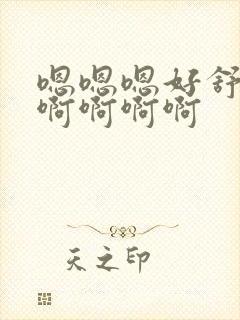 嗯嗯嗯好舒
啊啊啊啊
天之印